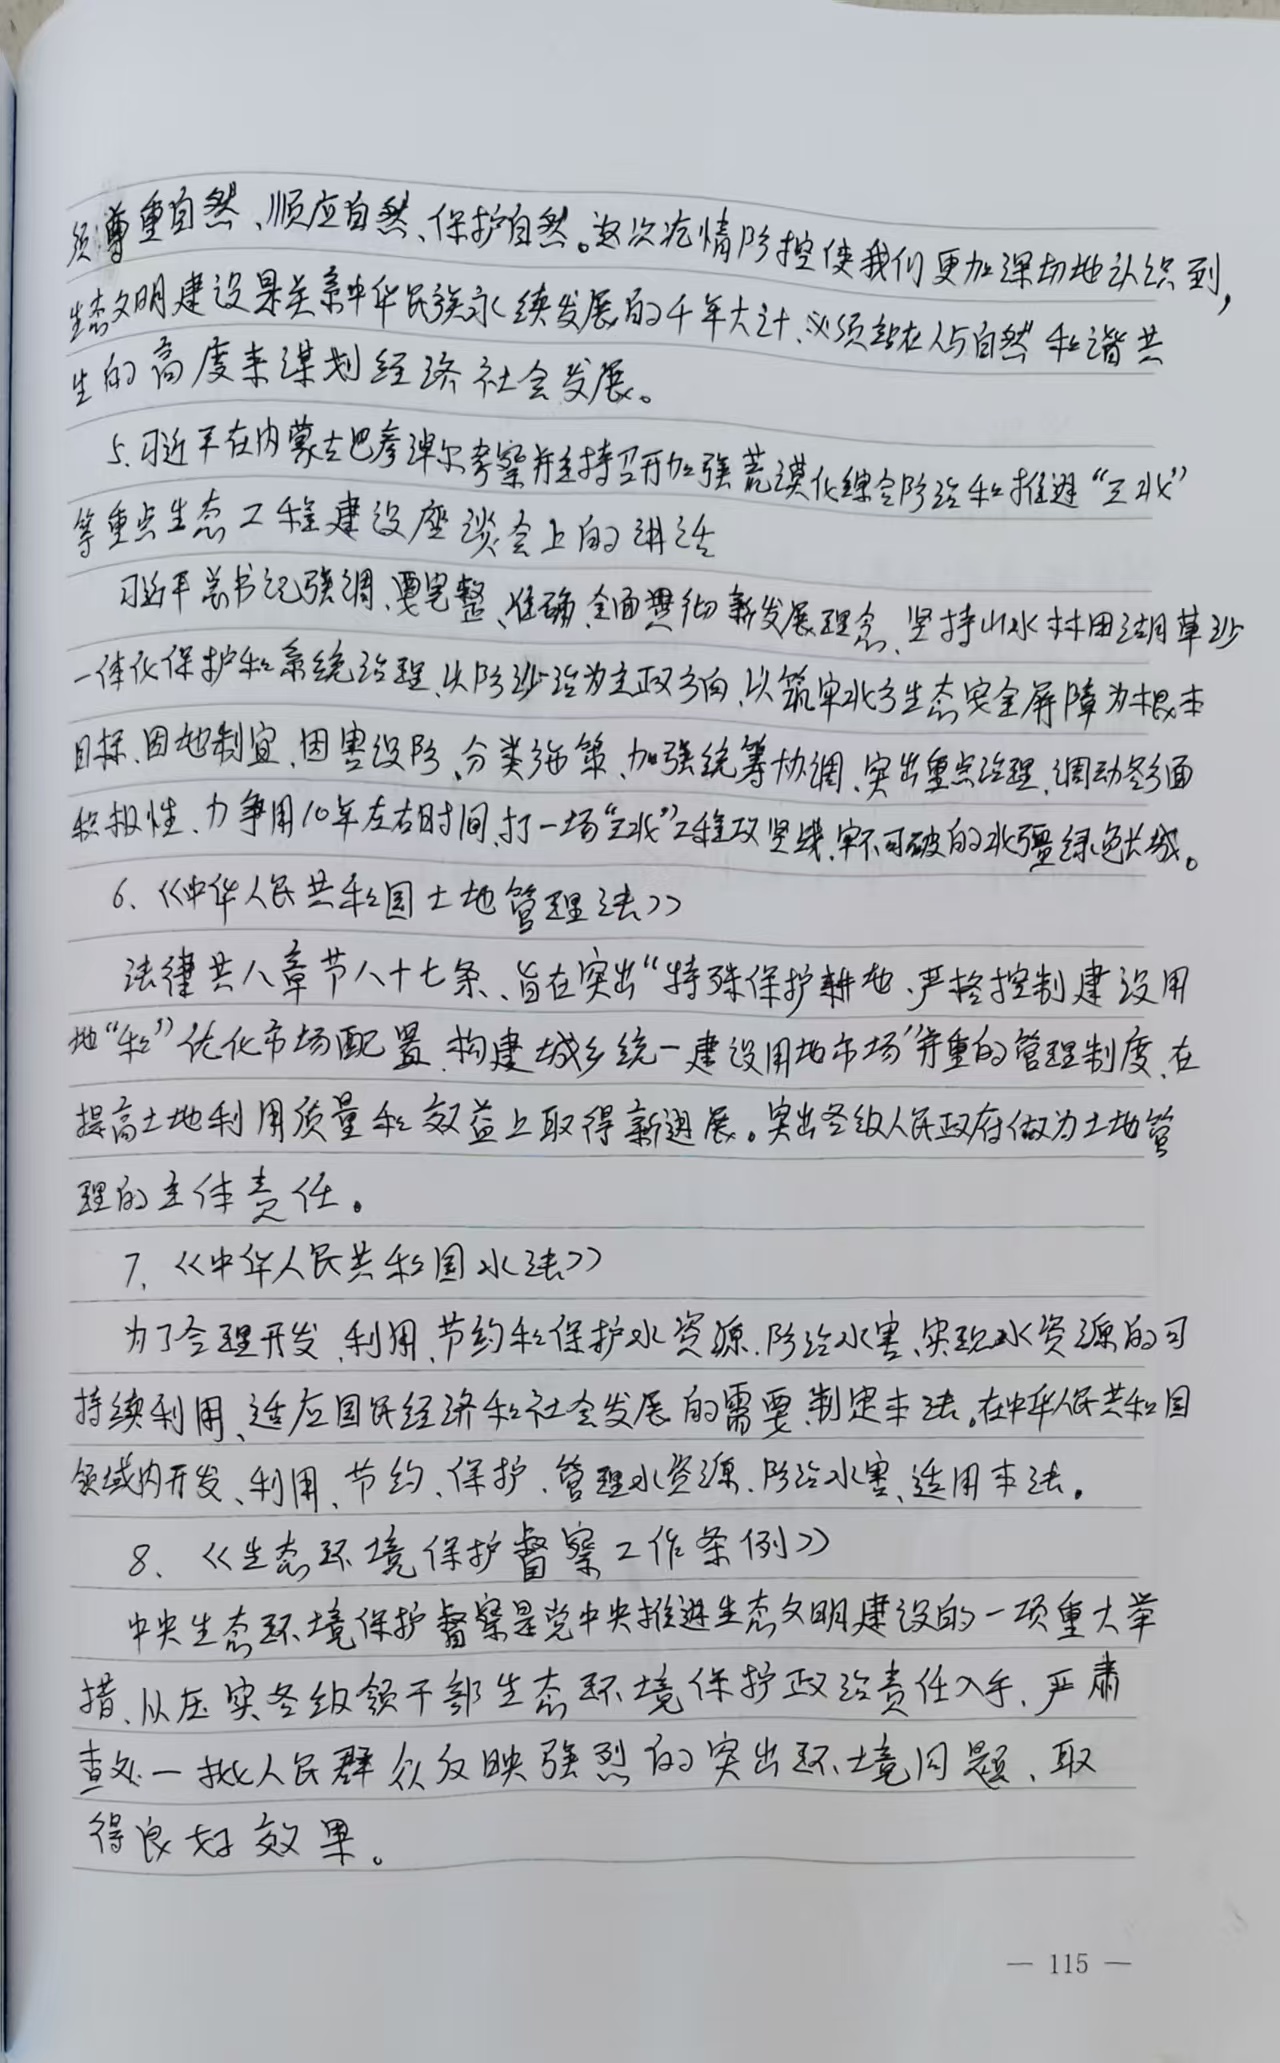 须尊重自然、顺应自然、保护自然。这次疫情防控使我们更加深切地认识到,
生态文明建设是关系中华民族永续发展的千年大计、必须站在人与自然和谐共
生的高度来谋划经济社会发展。
5、习近平在内蒙古巴彦淖尔考察并主持召开加强荒漠化综合防治和推进“三北”
等重点生态工程建设座谈会上的讲话
习近平总书记强调、要完整、准确、全面贯彻新发展理念、坚持山水林田湖草沙
一体化保护和系统治理、以防沙治为主攻方向、以筑牢北方生态安全屏障为根本
目标、因地制宜、因害设防、分类施策、加强统筹协调、突出重点治理、调动各方面
积极性、力争用10年左右时间、打一场“三北”工程攻坚战、牢不可破的北疆绿色长城。
6、《中华人民共和国土地管理法》
法律共八章节八十七条、旨在突出“特殊保护耕地、严格控制建设用
地“和”优化市场配置、构建城乡统一建设用地市场”并重的管理制度、在
提高土地利用质量和效益上取得新进展。突出各级人民政府做为土地管
理的主体责任。
7、《中华人民共和国水法》
为了合理开发、利用、节约和保护水资源、防治水害、实现水资源的可
持续利用、适应国民经济和社会发展的需要、制定本法。在中华人民共和国
领域内开发、利用、节约、保护、管理水资源、防治水害、适用本法。
8、《生态环境保护督察工作条例》
中央生态环境保护督察是党中央推进生态文明建设的一项重大举
措、从压实各级领干部生态环境保护政治责任入手、严肃
查处一批人民群众反映强烈的突出环境问题、取
得良好效果。
— 115 —